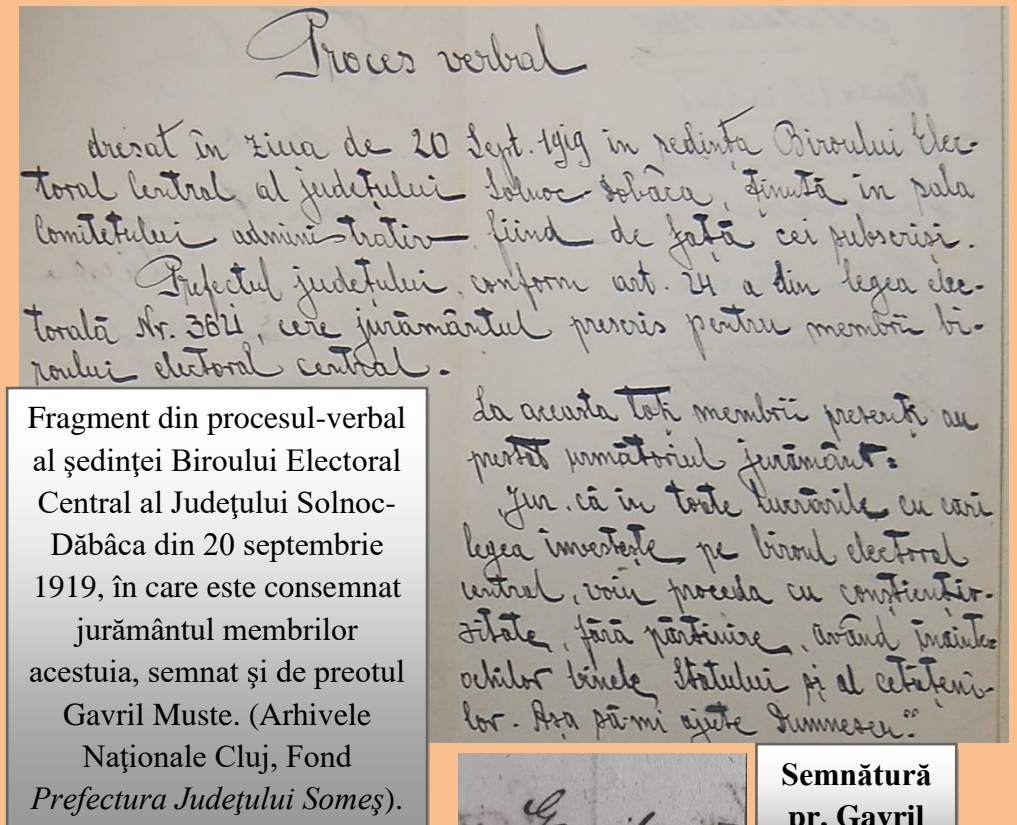 Proces verbal
dresat în ziua de 20 Sept. 1919 in sedința Biroului Elec-
toral Central al județului Solnoc-Dobâca, ținută in sala
Comitetului administrativ fiind de față cei subscriși.
Prefectul județului, conform art. 24 a din legea elec-
torală Nr. 3621, cere jurământul prescris pentru membrii bi-
roului electoral central.
La aceasta toți membrii prezenți au
prestat următoriul jurământ:
„Jur, că in toate lucrările cu cari
legea investește pe biroul electoral
central, voiu proceda cu conștiențio-
zitate, fără părtinire, având înaintea
ochilor binele Statului și al cetățeni-
lor. Așa să-mi ajute Dumnezeu."
Fragment din procesul-verbal
al şedinţei Biroului Electoral
Central al Judeţului Solnoc-
Dăbâca din 20 septembrie
1919, în care este consemnat
jurământul membrilor
acestuia, semnat şi de preotul
Gavril Muste. (Arhivele
Naţionale Cluj, Fond
Prefectura Judeţului Someş).
Semnătură
pr. Gavril